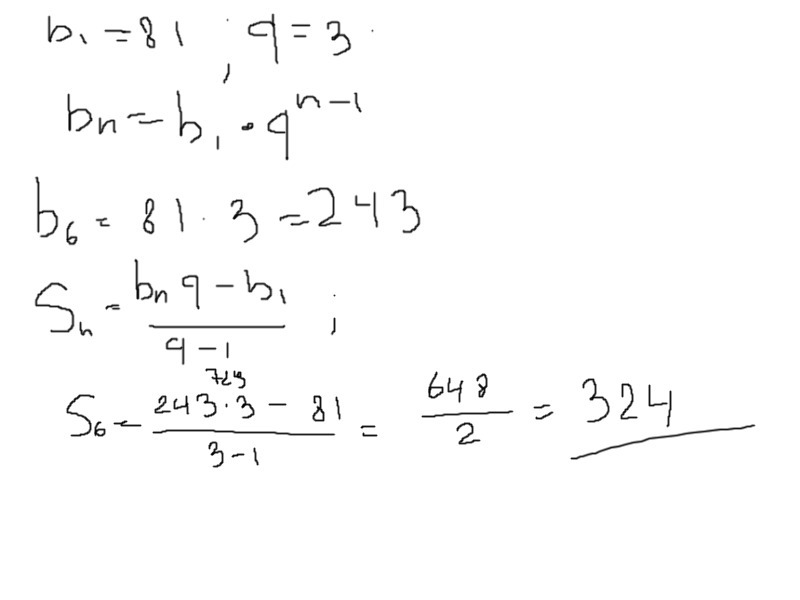 b₁ = 81 ; q = 3
bₙ = b₁ · qⁿ⁻¹
b₆ = 81 · 3 = 243
Sₙ = (bₙ q − b₁) / (q − 1) ;
729
S₆ = (243 · 3 − 81) / (3 − 1) = 648 / 2 = 324